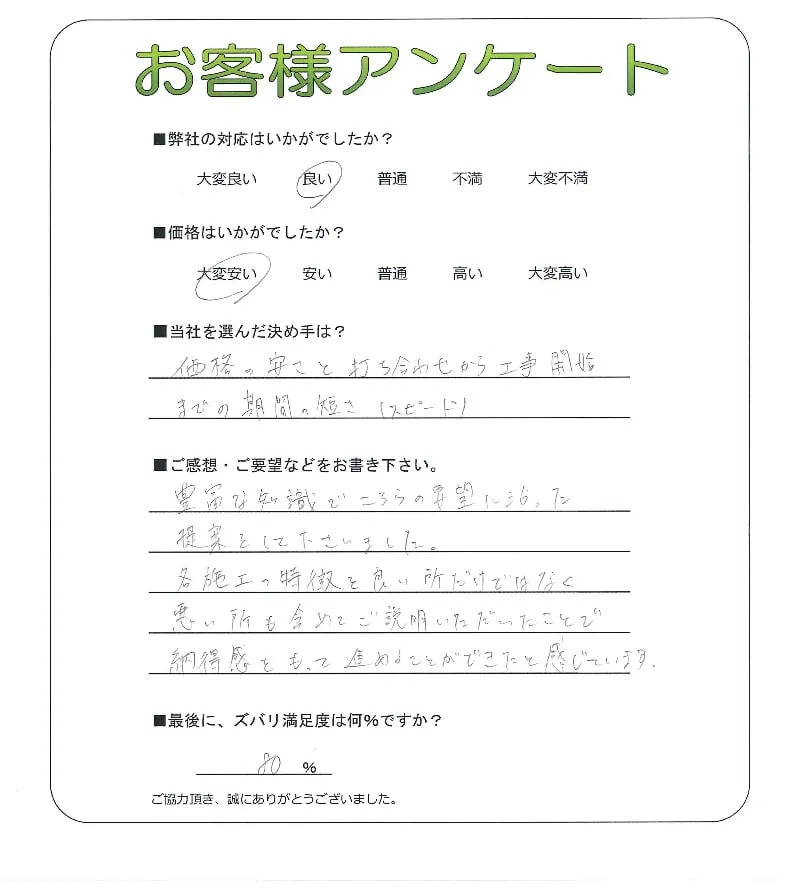 お客様アンケート
■弊社の対応はいかがでしたか？
大変良い 良い 普通 不満 大変不満
■価格はいかがでしたか？
大変安い 安い 普通 高い 大変高い
■当社を選んだ決め手は？
価格の安さと打ち合わせから工事開始
までの期間の短さ(スピード)
■ご感想・ご要望などをお書き下さい。
豊富な知識でこちらの要望に沿った
提案をして下さいました。
各施工の特徴を良い所だけではなく
悪い所も含めてご説明いただいたことで
納得感をもって進めることができたと感じています.
■最後に、ズバリ満足度は何%ですか？
80 %
ご協力頂き、誠にありがとうございました。